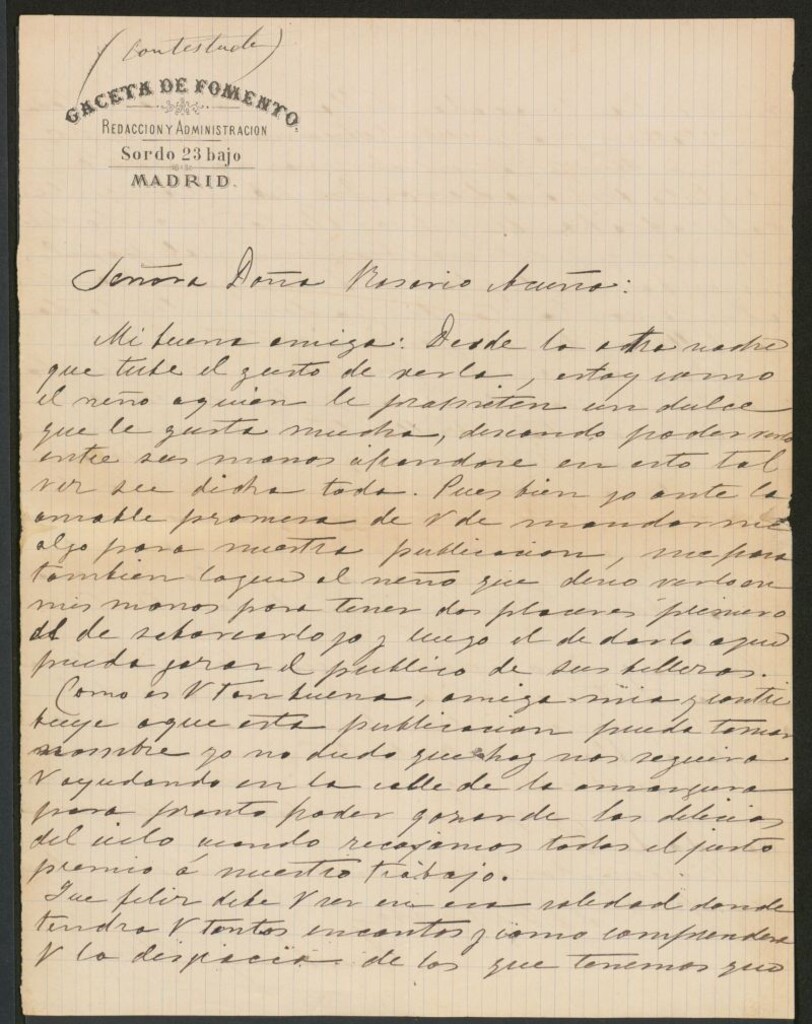 (Contestada)
GACETA DE FOMENTO.
REDACCION Y ADMINISTRACION
Sordo 23 bajo
MADRID.
Señora Doña Rosario Acuña:
Mi buena amiga: Desde la otra noche
que tube el gusto de verla, estoy como
el niño aquien le prometen un dulce
que le gusta mucho, deseando poder verlo
entre sus manos en esto tal
vez su dicha toda. Pues bien yo ante la
amable promesa de V de mandarme
algo para nuestra publicacion, me pasa
tambien loque al niño que deseo verlo en
mis manos para tener dos placeres primero
el de saborearlo yo y luego el de darlo aque
pueda gozar el publico de sus bellezas.
Como es V tan buena, amiga mia y contri
buye aque esta publicacion pueda tomar
nombre yo no dudo que hoy nos seguira
V ayudando en la calle de la amargura
para pronto poder gozar de las delicias
del cielo cuando recojamos todos el justo
premio á nuestro trabajo.
Que feliz debe V ser en esa soledad donde
tendra V tantos encantos y como comprendera
V la desgracia de los que tenemos que